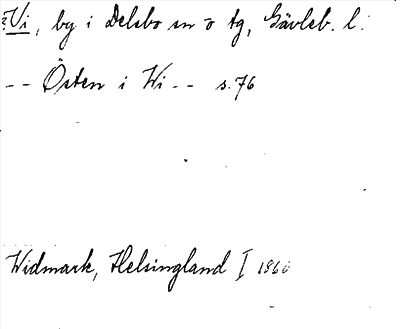 ?Vi, by i Delsbo sn o tg, Gävleb. l.
-- Östen i Wi -- s. 76
Widmark, Helsingland I 1860